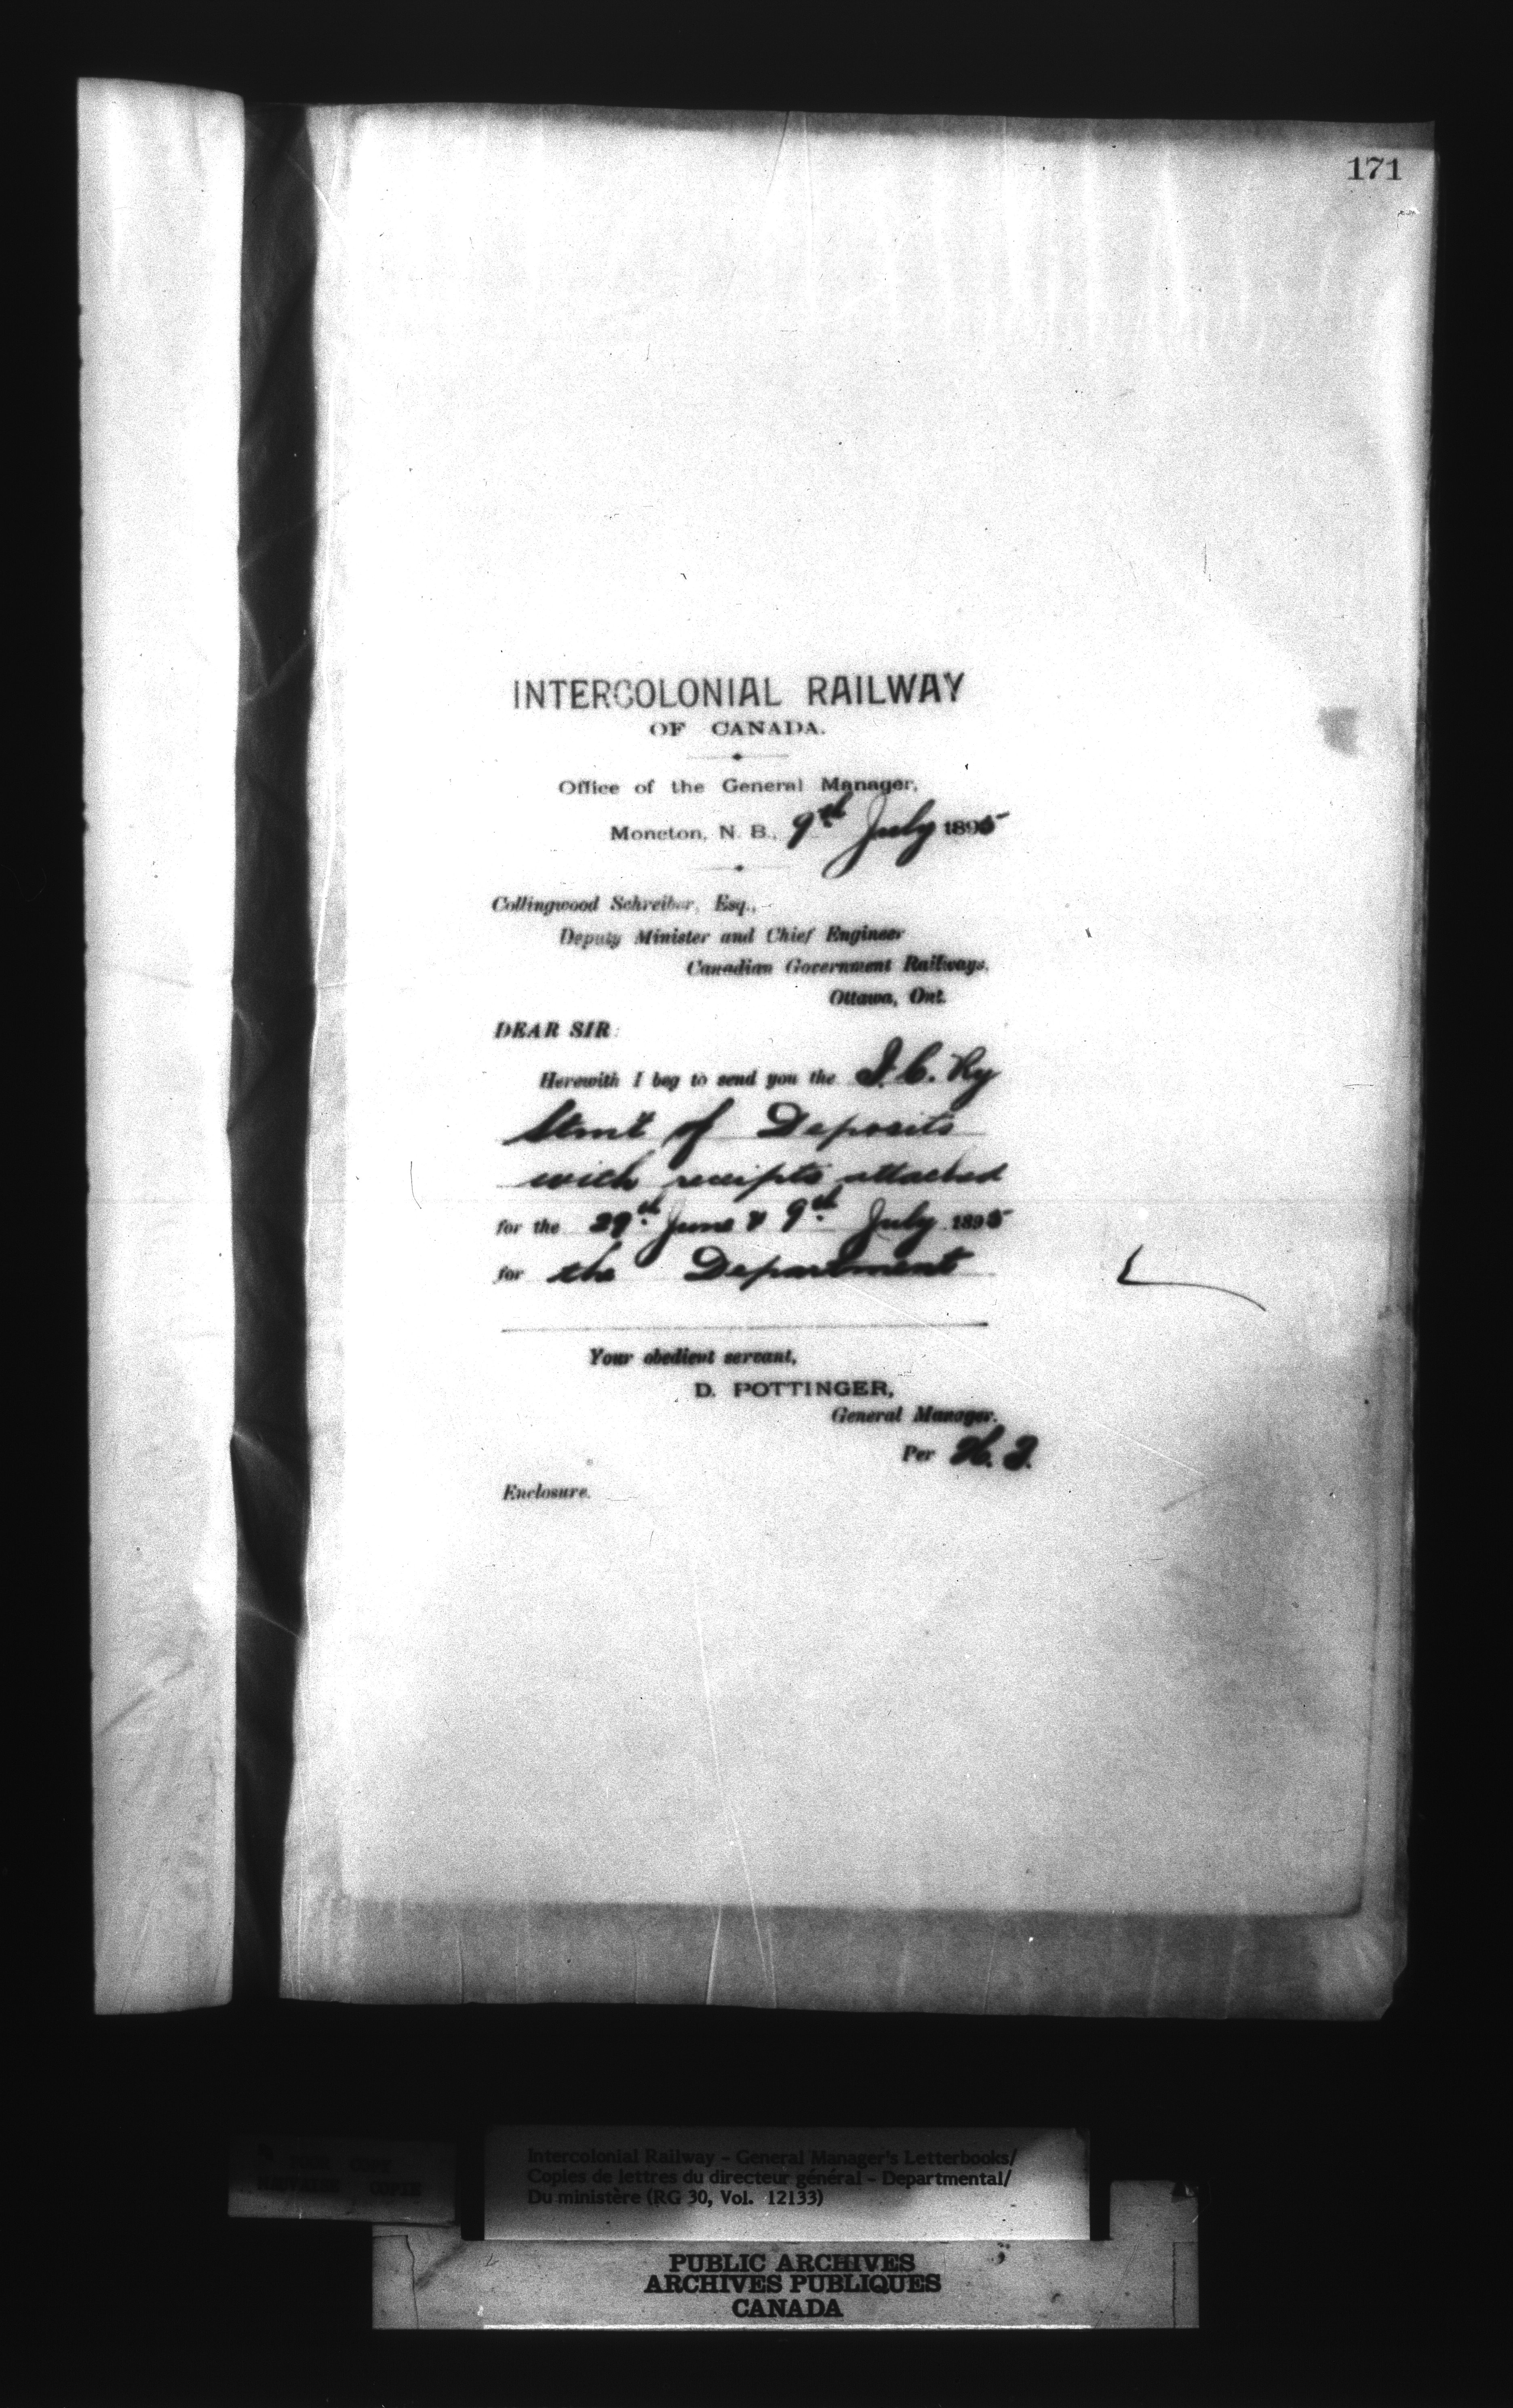 171
INTERCOLONIAL RAILWAY
OF CANADA.
Office of the General Manager,
Moncton, N. B., 9th July 1895
Collingwood Schreiber, Esq.,
Deputy Minister and Chief Engineer
Canadian Government Railways,
Ottawa, Ont.
DEAR SIR:
Herewith I beg to send you the I. C. Ry
Stmt of Deposits
with receipts attached
for the 29th June & 9th July 1895
for the Department
Your obedient servant,
D. POTTINGER,
General Manager.
Per
Enclosure.
Intercolonial Railway - General Manager's Letterbooks/
Copies de lettres du directeur général - Departmental/
Du ministère (RG 30, Vol. 12133)
PUBLIC ARCHIVES
ARCHIVES PUBLIQUES
CANADA